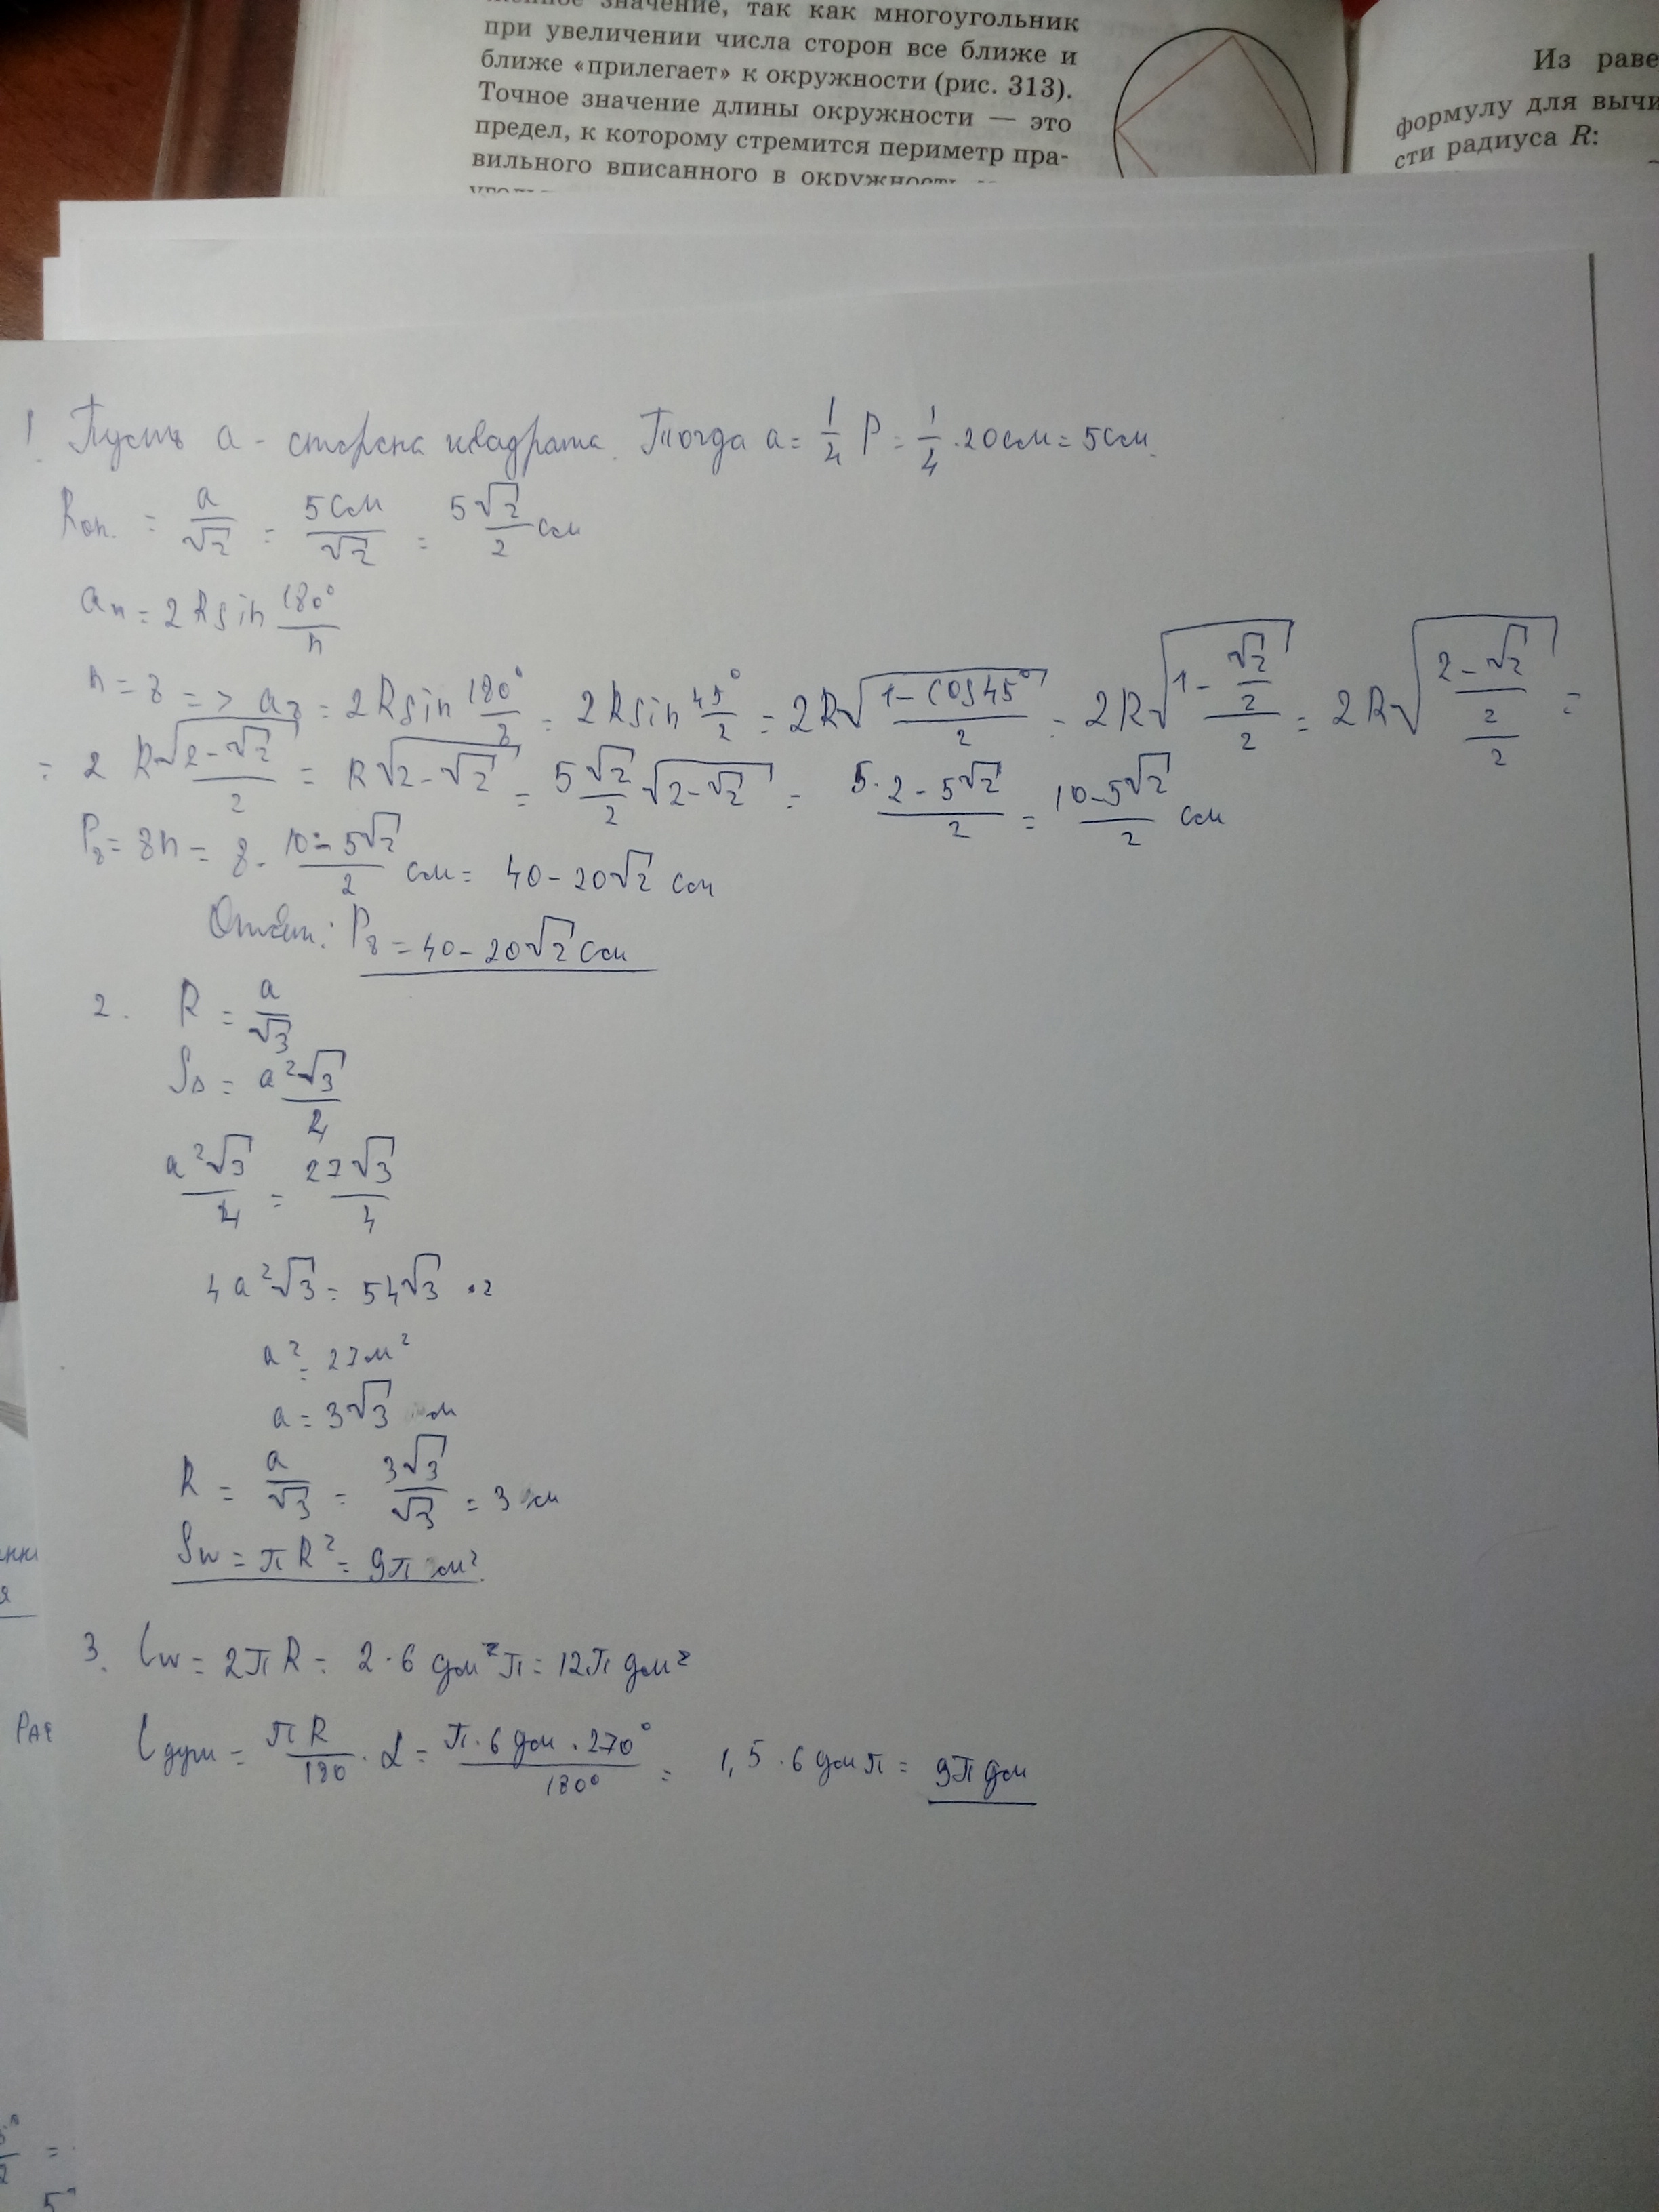 женное значение, так как многоугольник
при увеличении числа сторон все ближе и
ближе «прилегает» к окружности (рис. 313).
Точное значение длины окружности — это
предел, к которому стремится периметр пра-
вильного вписанного в окружность
Из раве
формулу для вычи
сти радиуса R:
1. Пусть a - сторона квадрата. Тогда a = 1/4 P = 1/4 · 20 см = 5 см.
Rоп. = a/√2 = 5 см/√2 = 5√2/2 см
aₙ = 2R sin 180°/n
n = 8 => a₈ = 2R sin 180°/8 = 2R sin 45°/2 = 2R√((1 - cos 45°)/2) = 2R√((1 - √2/2)/2) = 2R√(((2 - √2)/2)/2) =
= 2 R√(2 - √2)/2 = R√(2 - √2) = 5√2/2 √(2 - √2) = (5·2 - 5√2)/2 = (10 - 5√2)/2 см
P₈ = 8n = 8 · (10 - 5√2)/2 см = 40 - 20√2 см
Ответ: P₈ = 40 - 20√2 см
2. R = a/√3
S△ = a²√3/4
a²√3/4 = 27√3/4
4a²√3 = 54√3 · 2
a² = 27 м²
a = 3√3 м
R = a/√3 = 3√3/√3 = 3 м
Sw = πR² = 9π м²
3. Cw = 2πR = 2·6 дм² π = 12π дм²
lдуги = πR/180 · α = π·6 дм·270°/180° = 1,5·6 дм π = 9π дм